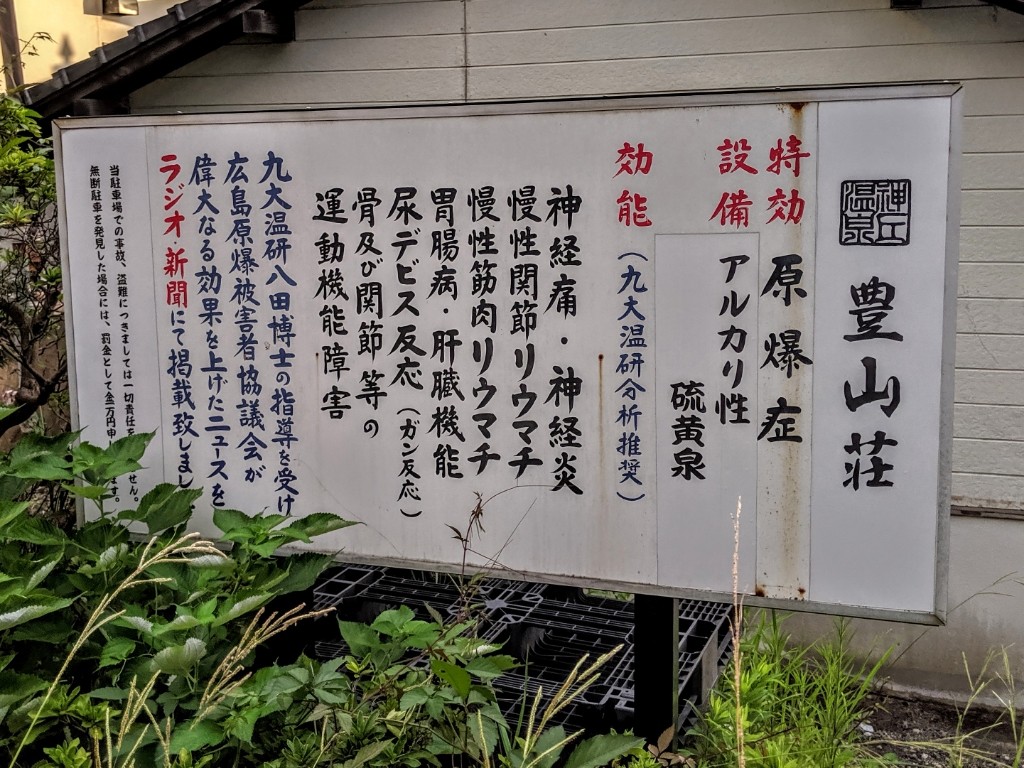 神丘温泉
豊山荘
特効 原爆症
設備 アルカリ性
硫黄泉
効能（九大温研分析推奨）
神経痛・神経炎
慢性関節リウマチ
慢性筋肉リウマチ
胃腸病・肝臓機能
尿デビス反応（ガン反応）
骨及び関節等の
運動機能障害
九大温研八田博士の指導を受け
広島原爆被害者協議会が
偉大なる効果を上げたニュースを
ラジオ・新聞にて掲載致しまし
当駐車場での事故、盗難につきましては一切責任を せん。
無断駐車を発見した場合には、罰金として金一万円申 ます。